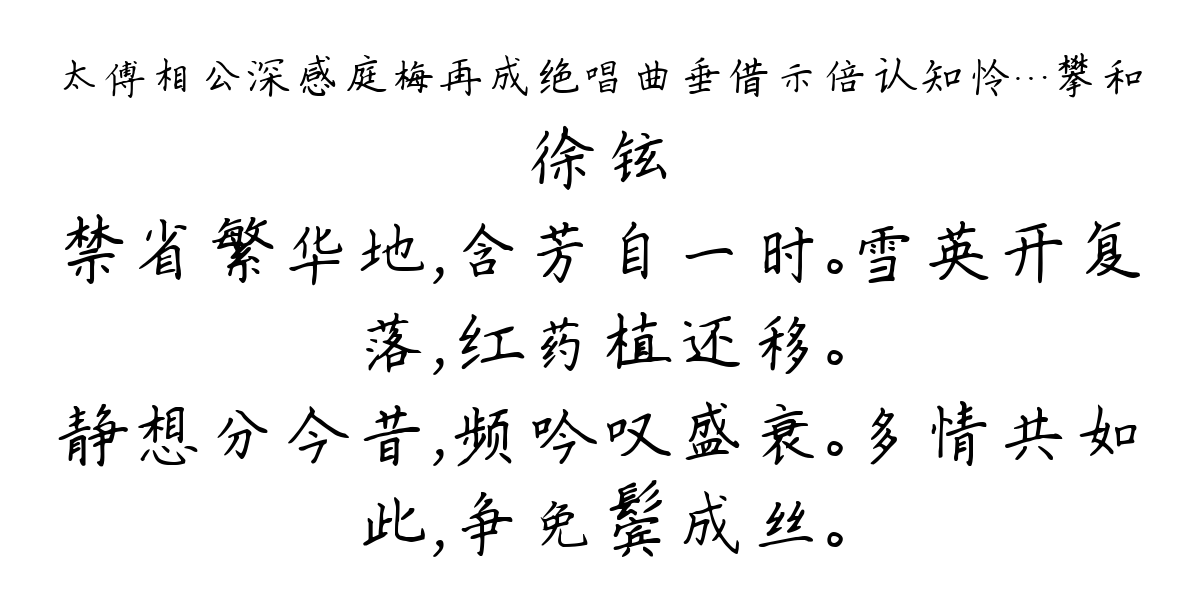 太傅相公深感庭梅再成绝唱曲垂借示倍认知怜…攀和
徐铉
禁省繁华地,含芳自一时。雪英开复
落,红药植还移。
静想分今昔,频吟叹盛衰。多情共如
此,争免鬓成丝。